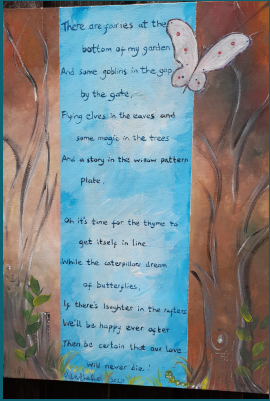 There are fairies at the
bottom of my garden
And some goblins in the gap
by the gate,
Flying elves in the eaves and
some magic in the trees
And a story in the willow pattern
plate.
Oh it's time for the thyme to
get itself in line
While the caterpillars dream
of butterflies,
If there's laughter in the rafters
We'll be happy ever after
Then be certain that our love
will never die.!